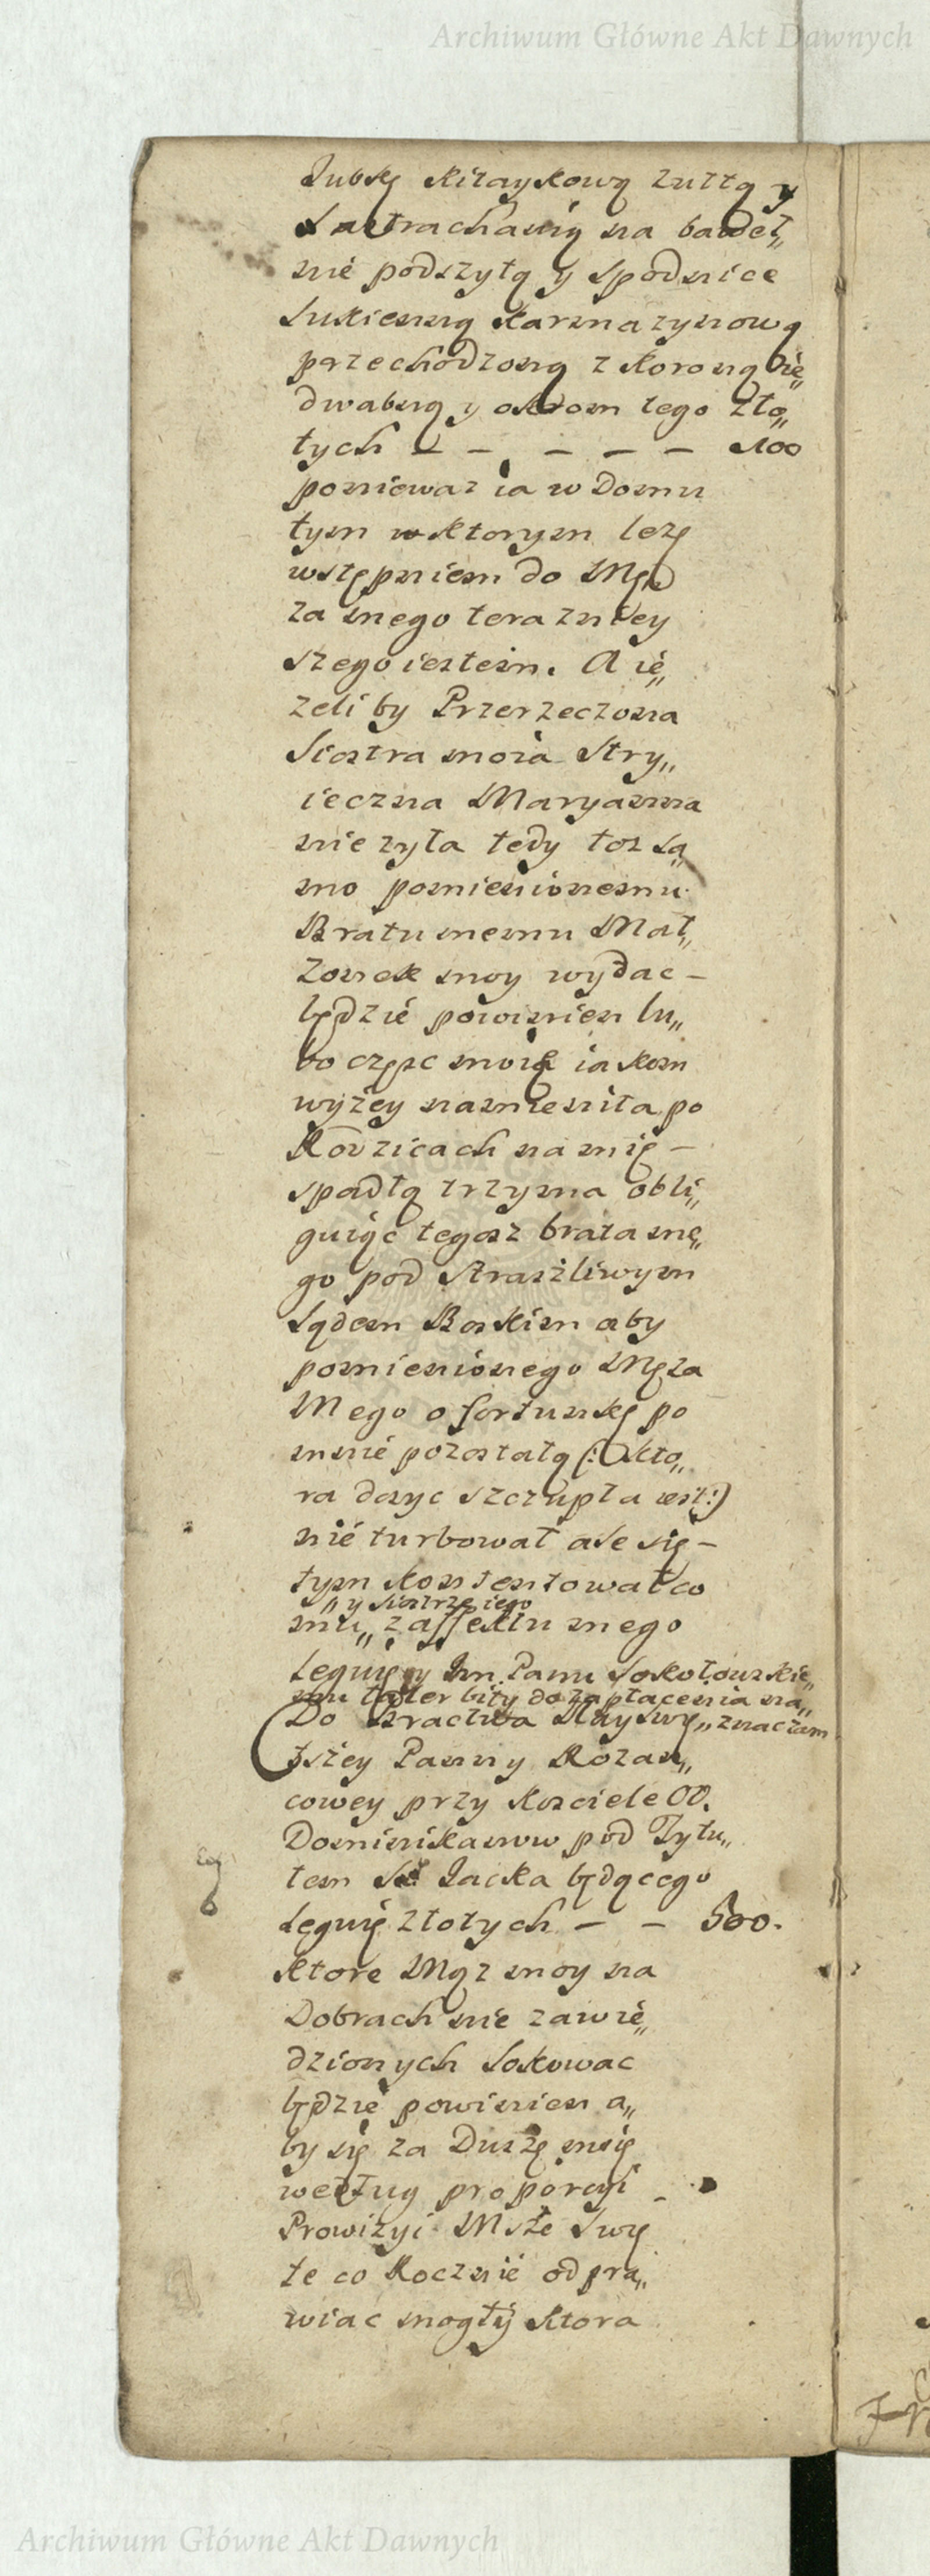 Archiwum Główne Akt Dawnych
Jubkę kitaykową żułtą y
Lastrachanią na baweł„
nie podszytą y spodnice
Sukienną karmazynową
przechodzoną z Koroną Je„
dwabną y okrom tego zło„
tych — — — — — 100
poniewaz ia w Domu
tym w ktorym lezę
wstępniem do Męż
za mego terazniey
szego iestem. A ie„
zeliby Przerzeczona
Siostra moia Stry„
ieczna Maryanna
nie zyła tedy toz sa„
mo pomienionemu
Bratu memu Mał„
zonek moy wydac –
będzie powinien lu„
bo częsc moię iakom
wyżey namieniła po
Rodzicach na mię –
spadłą trzyma obli„
guiąc tegosz brata me„
go pod straszliwym
Sądem Boskim aby
pomienionego Męza
Mego o fortunkę po
mnie pozostałą (: kto„
ra dosyc szczupła iest :)
nie turbował ale się –
tym kontentował co
„ y siostrze iego
mu „ z affektu mego
Leguię y Jm. Panu Sokołowskie„
mu taler bity do zapłacenia na„
Do Bractwa Nayswę„ znaczam
tszey Panny Rozan„
cowey przy Kosciele OO.
Dominikanow pod Tytu„
łem Sº Jacka będącego
Leguię złotych — — 500.
ktore Mąz moy na
Dobrach nie zawie„
dzionych lokowac
będzie powinien a„
by się za Duszę moię
według proporcyi –
Prowizyi Msze Swę
te co Rocznie odpra„
wiac mogły ktora
Archiwum Główne Akt Dawnych